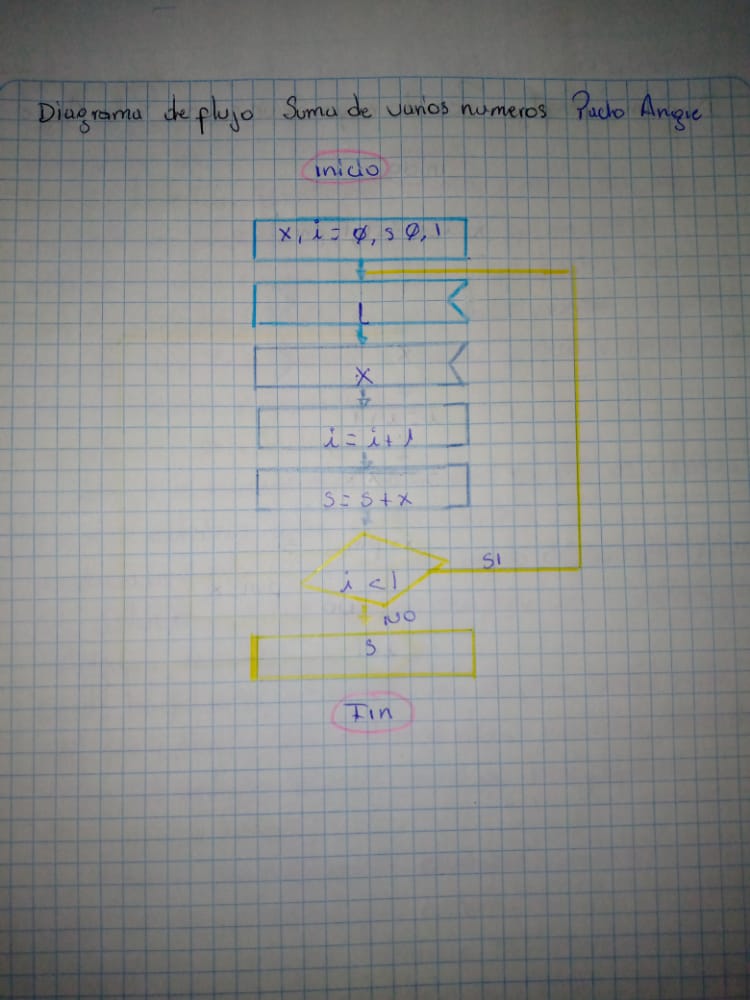 Diagrama de flujo Suma de varios numeros Pacho Angie
inicio
x, i = ø, s ø, l
L
x
i = i + 1
s = s + x
i < l
SI
NO
s
Fin